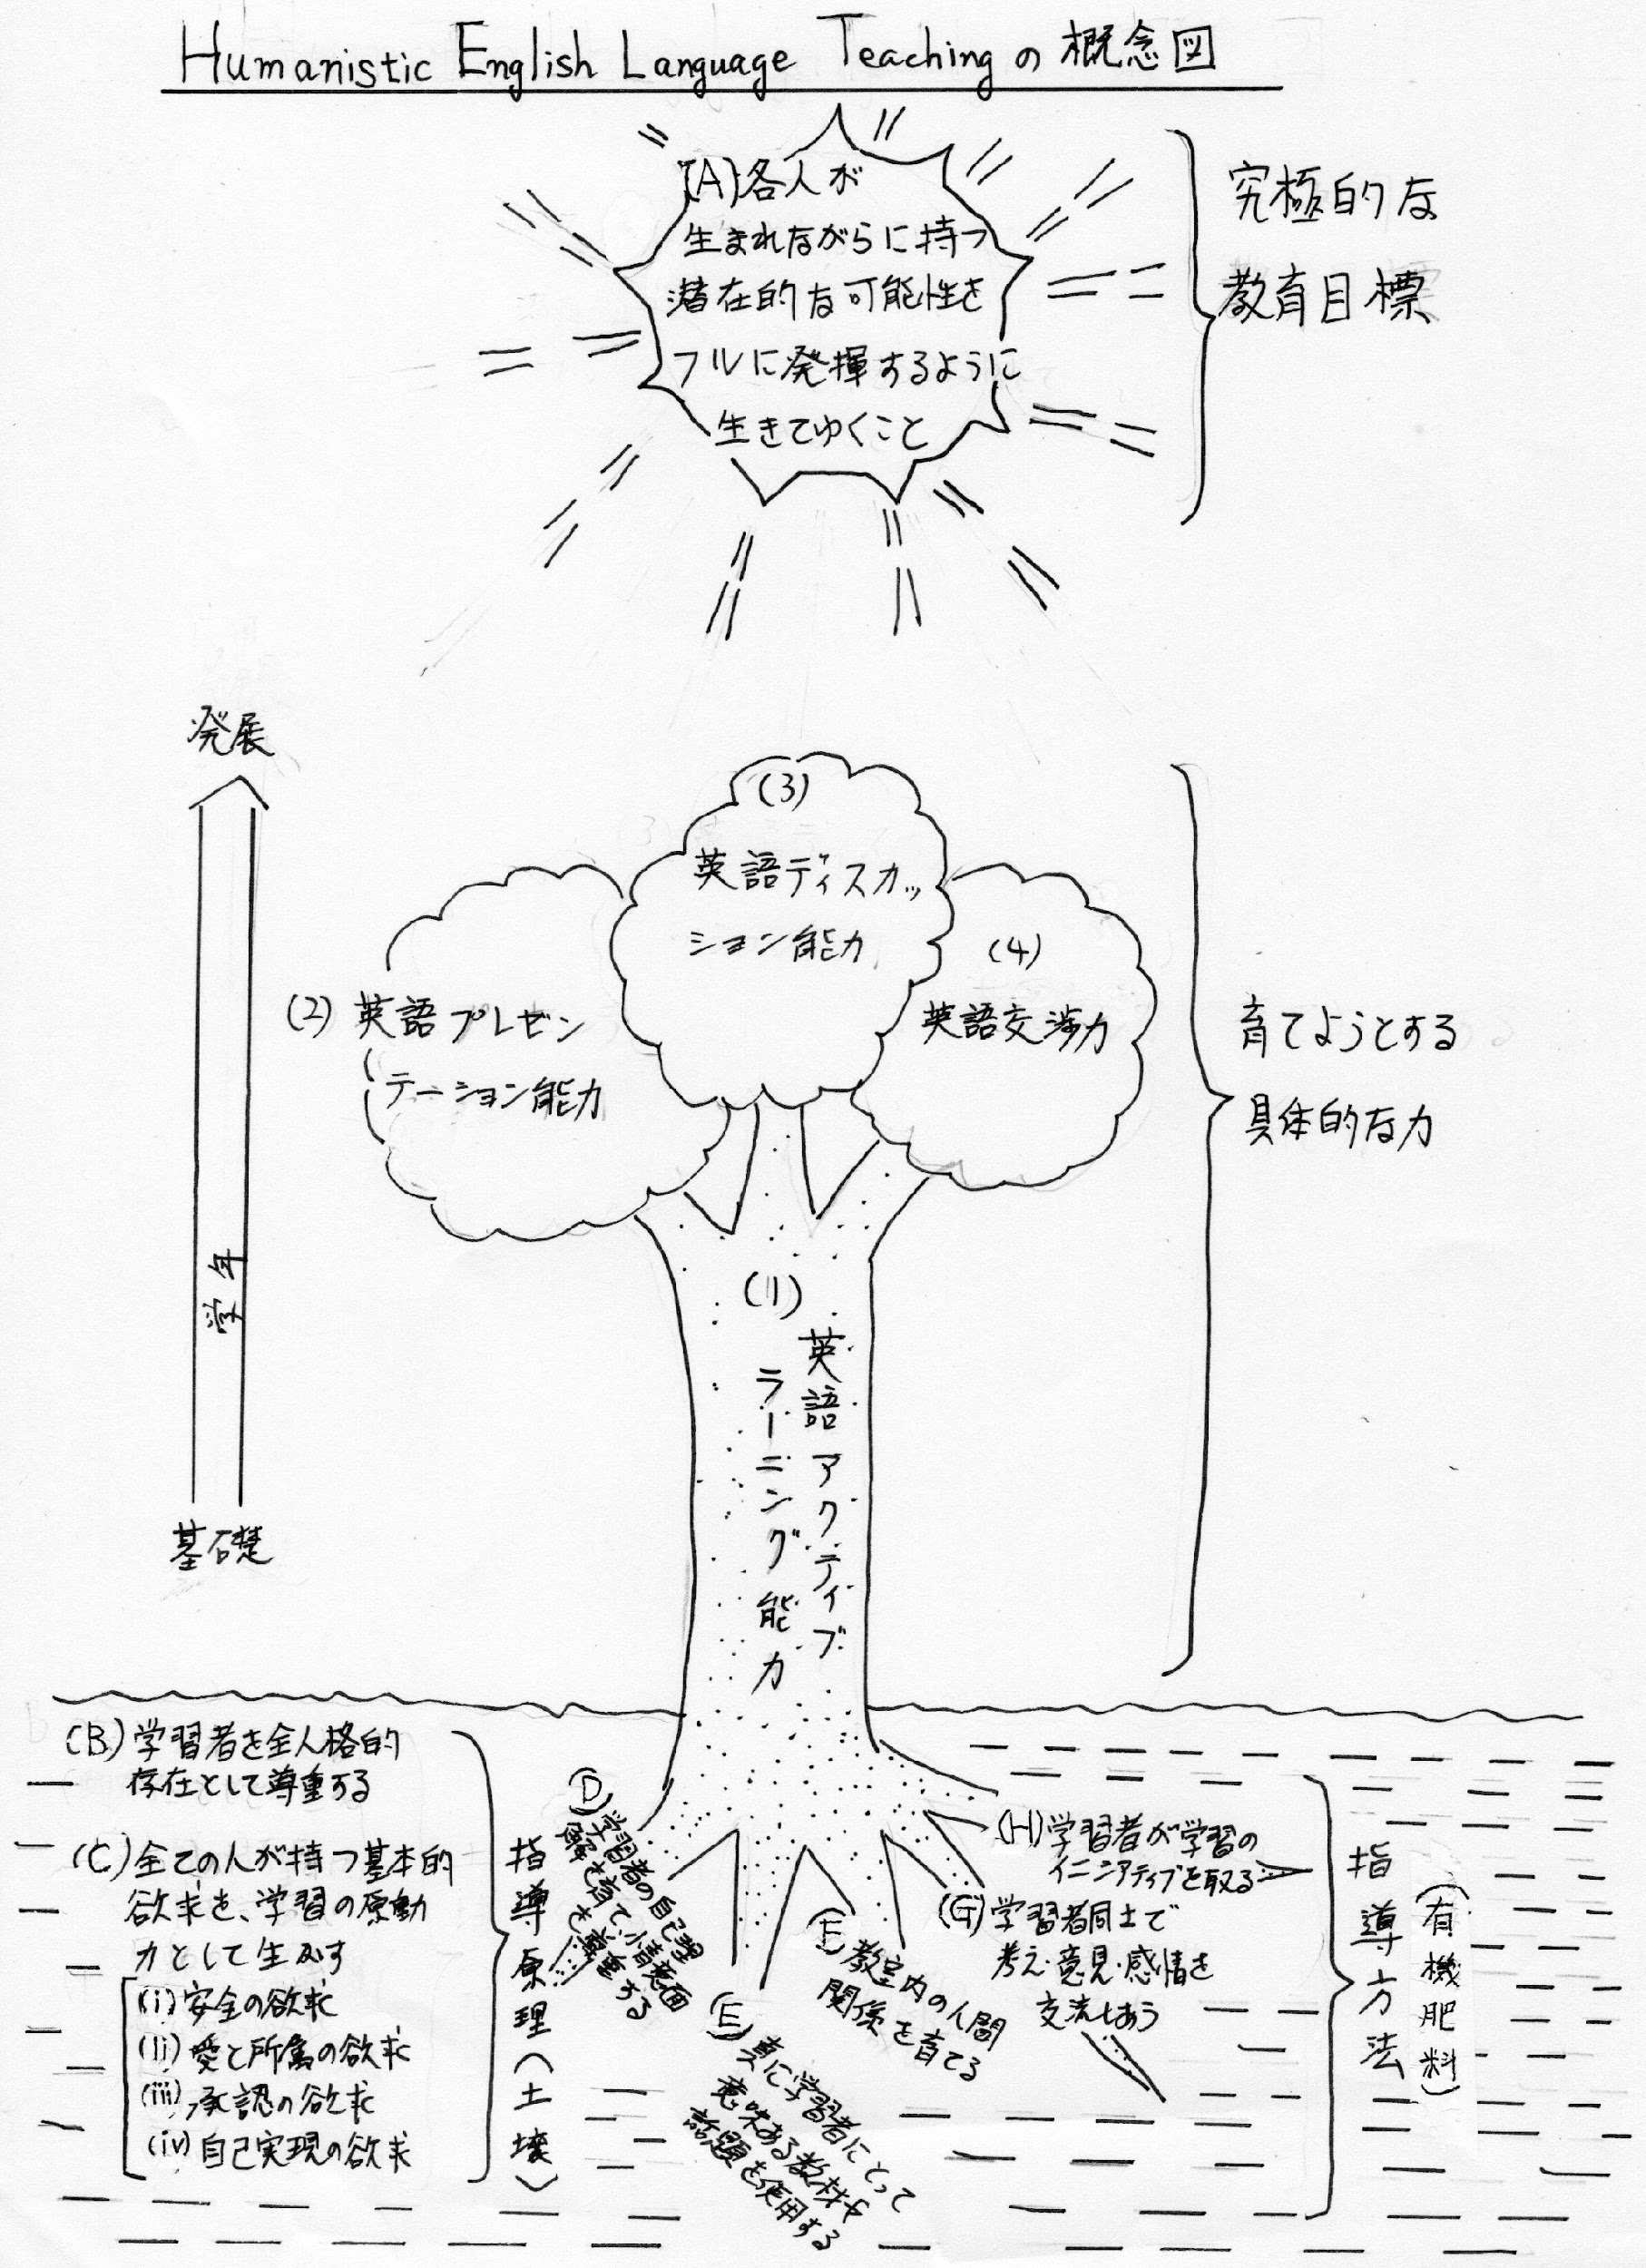 Humanistic English Language Teachingの概念図
(A)各人が
生まれながらに持つ
潜在的な可能性を
フルに発揮するように
生きてゆくこと
究極的な
教育目標
発展
学年
基礎
(3)
英語ディスカッ
ション能力
(2)英語プレゼン
テーション能力
(4)
英語交渉力
(1)
英語アクティブ
ラーニング能力
育てようとする
具体的な力
(B)学習者を全人格的
存在として尊重する
(C)全ての人が持つ基本的
欲求を、学習の原動
力として生かす
(i)安全の欲求
(ii)愛と所属の欲求
(iii)承認の欲求
(iv)自己実現の欲求
指導原理(土壌)
(D)学習者の自己理
解を育て、情意面
を尊重する
(E)真に学習者にとって
意味ある教材や
話題を使用する
(F)教室内の人間
関係を育てる
(G)学習者同士で
考え・意見・感情を
交流しあう
(H)学習者が学習の
イニシアティブを取る
指導方法
(有機肥料)